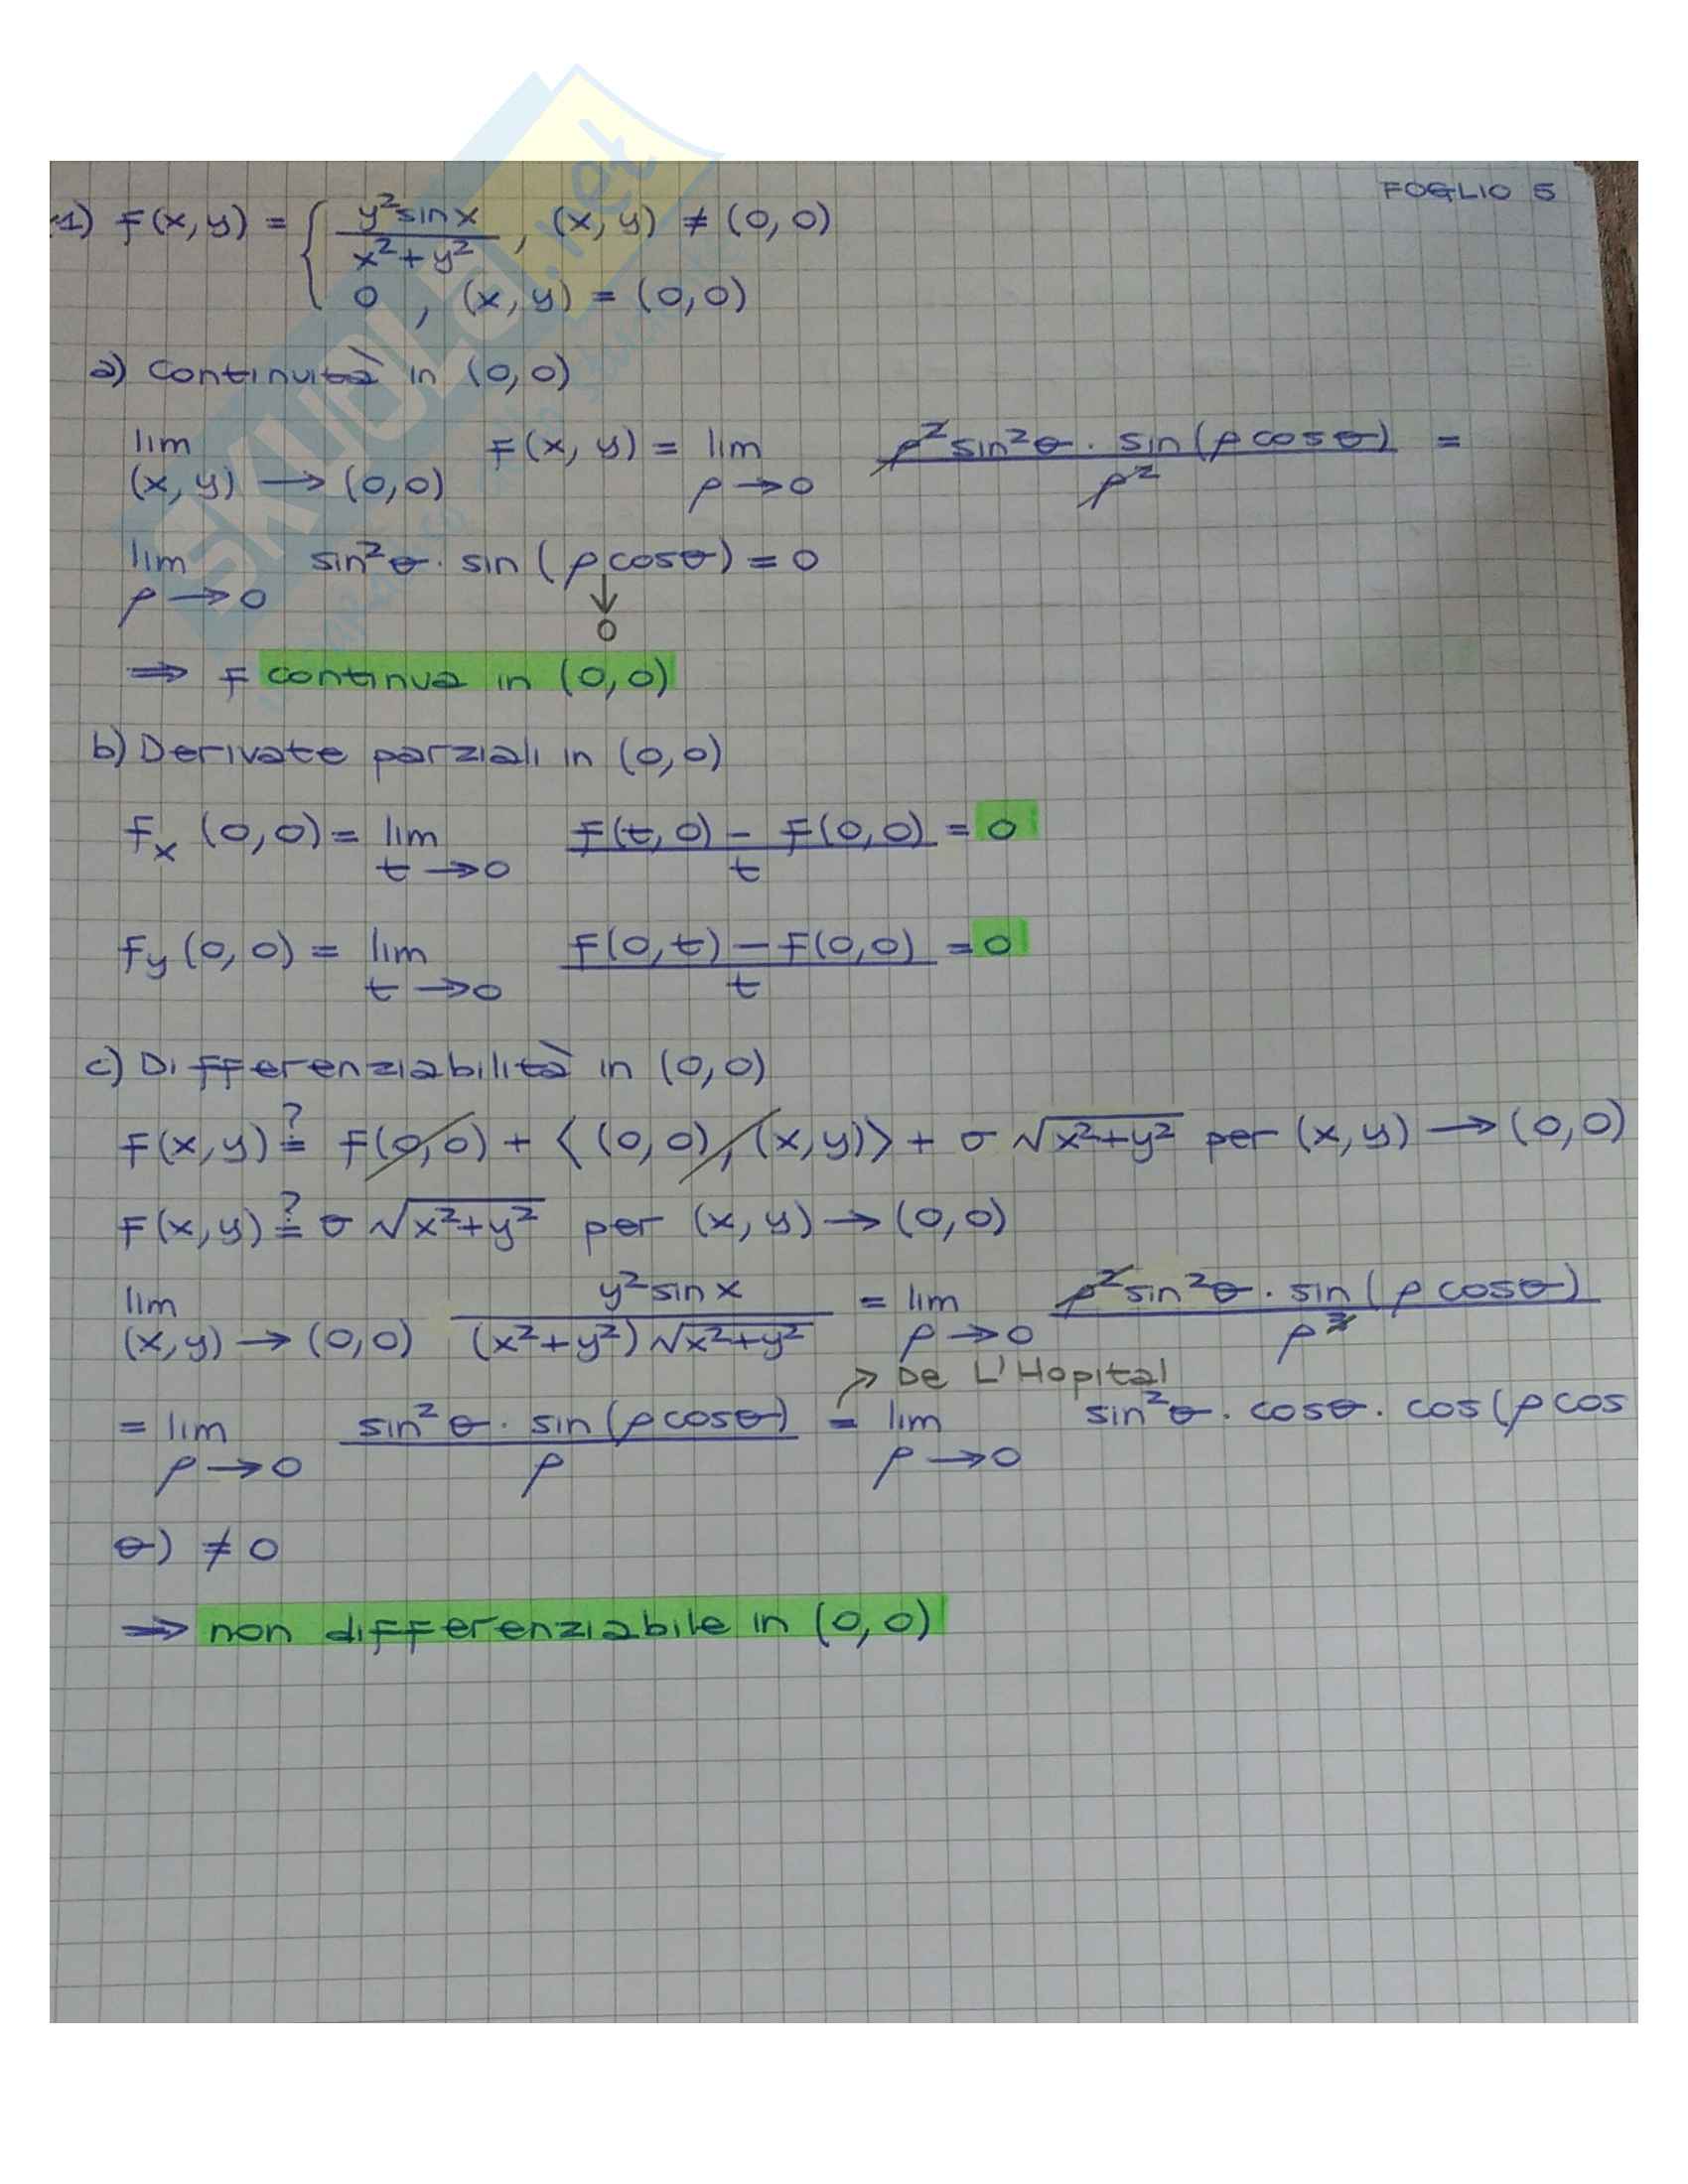 FOGLIO 5
1) f(x,y) = { y² sin x / x² + y² , (x,y) ≠ (0,0)
0 , (x,y) = (0,0)
a) Continuità in (0,0)
lim (x,y) → (0,0) f(x,y) = lim ρ → 0 ρ² sin²θ · sin(ρ cosθ) / ρ² =
lim ρ → 0 sin²θ · sin(ρ cosθ) = 0
↓
0
⇒ f continua in (0,0)
b) Derivate parziali in (0,0)
fx (0,0) = lim t → 0 f(t,0) − f(0,0) / t = 0
fy (0,0) = lim t → 0 f(0,t) − f(0,0) / t = 0
c) Differenziabilità in (0,0)
f(x,y) ?= f(0,0) + ⟨(0,0), (x,y)⟩ + σ √x²+y² per (x,y) → (0,0)
f(x,y) ?= σ √x²+y² per (x,y) → (0,0)
lim (x,y) → (0,0) y² sin x / (x²+y²) √x²+y² = lim ρ → 0 ρ² sin²θ · sin(ρ cosθ) / ρ³
→ De L'Hopital
= lim ρ → 0 sin²θ · sin(ρ cosθ) / ρ = lim ρ → 0 sin²θ · cosθ · cos(ρ cos
θ) ≠ 0
⇒ non differenziabile in (0,0)
SKUOLA.net